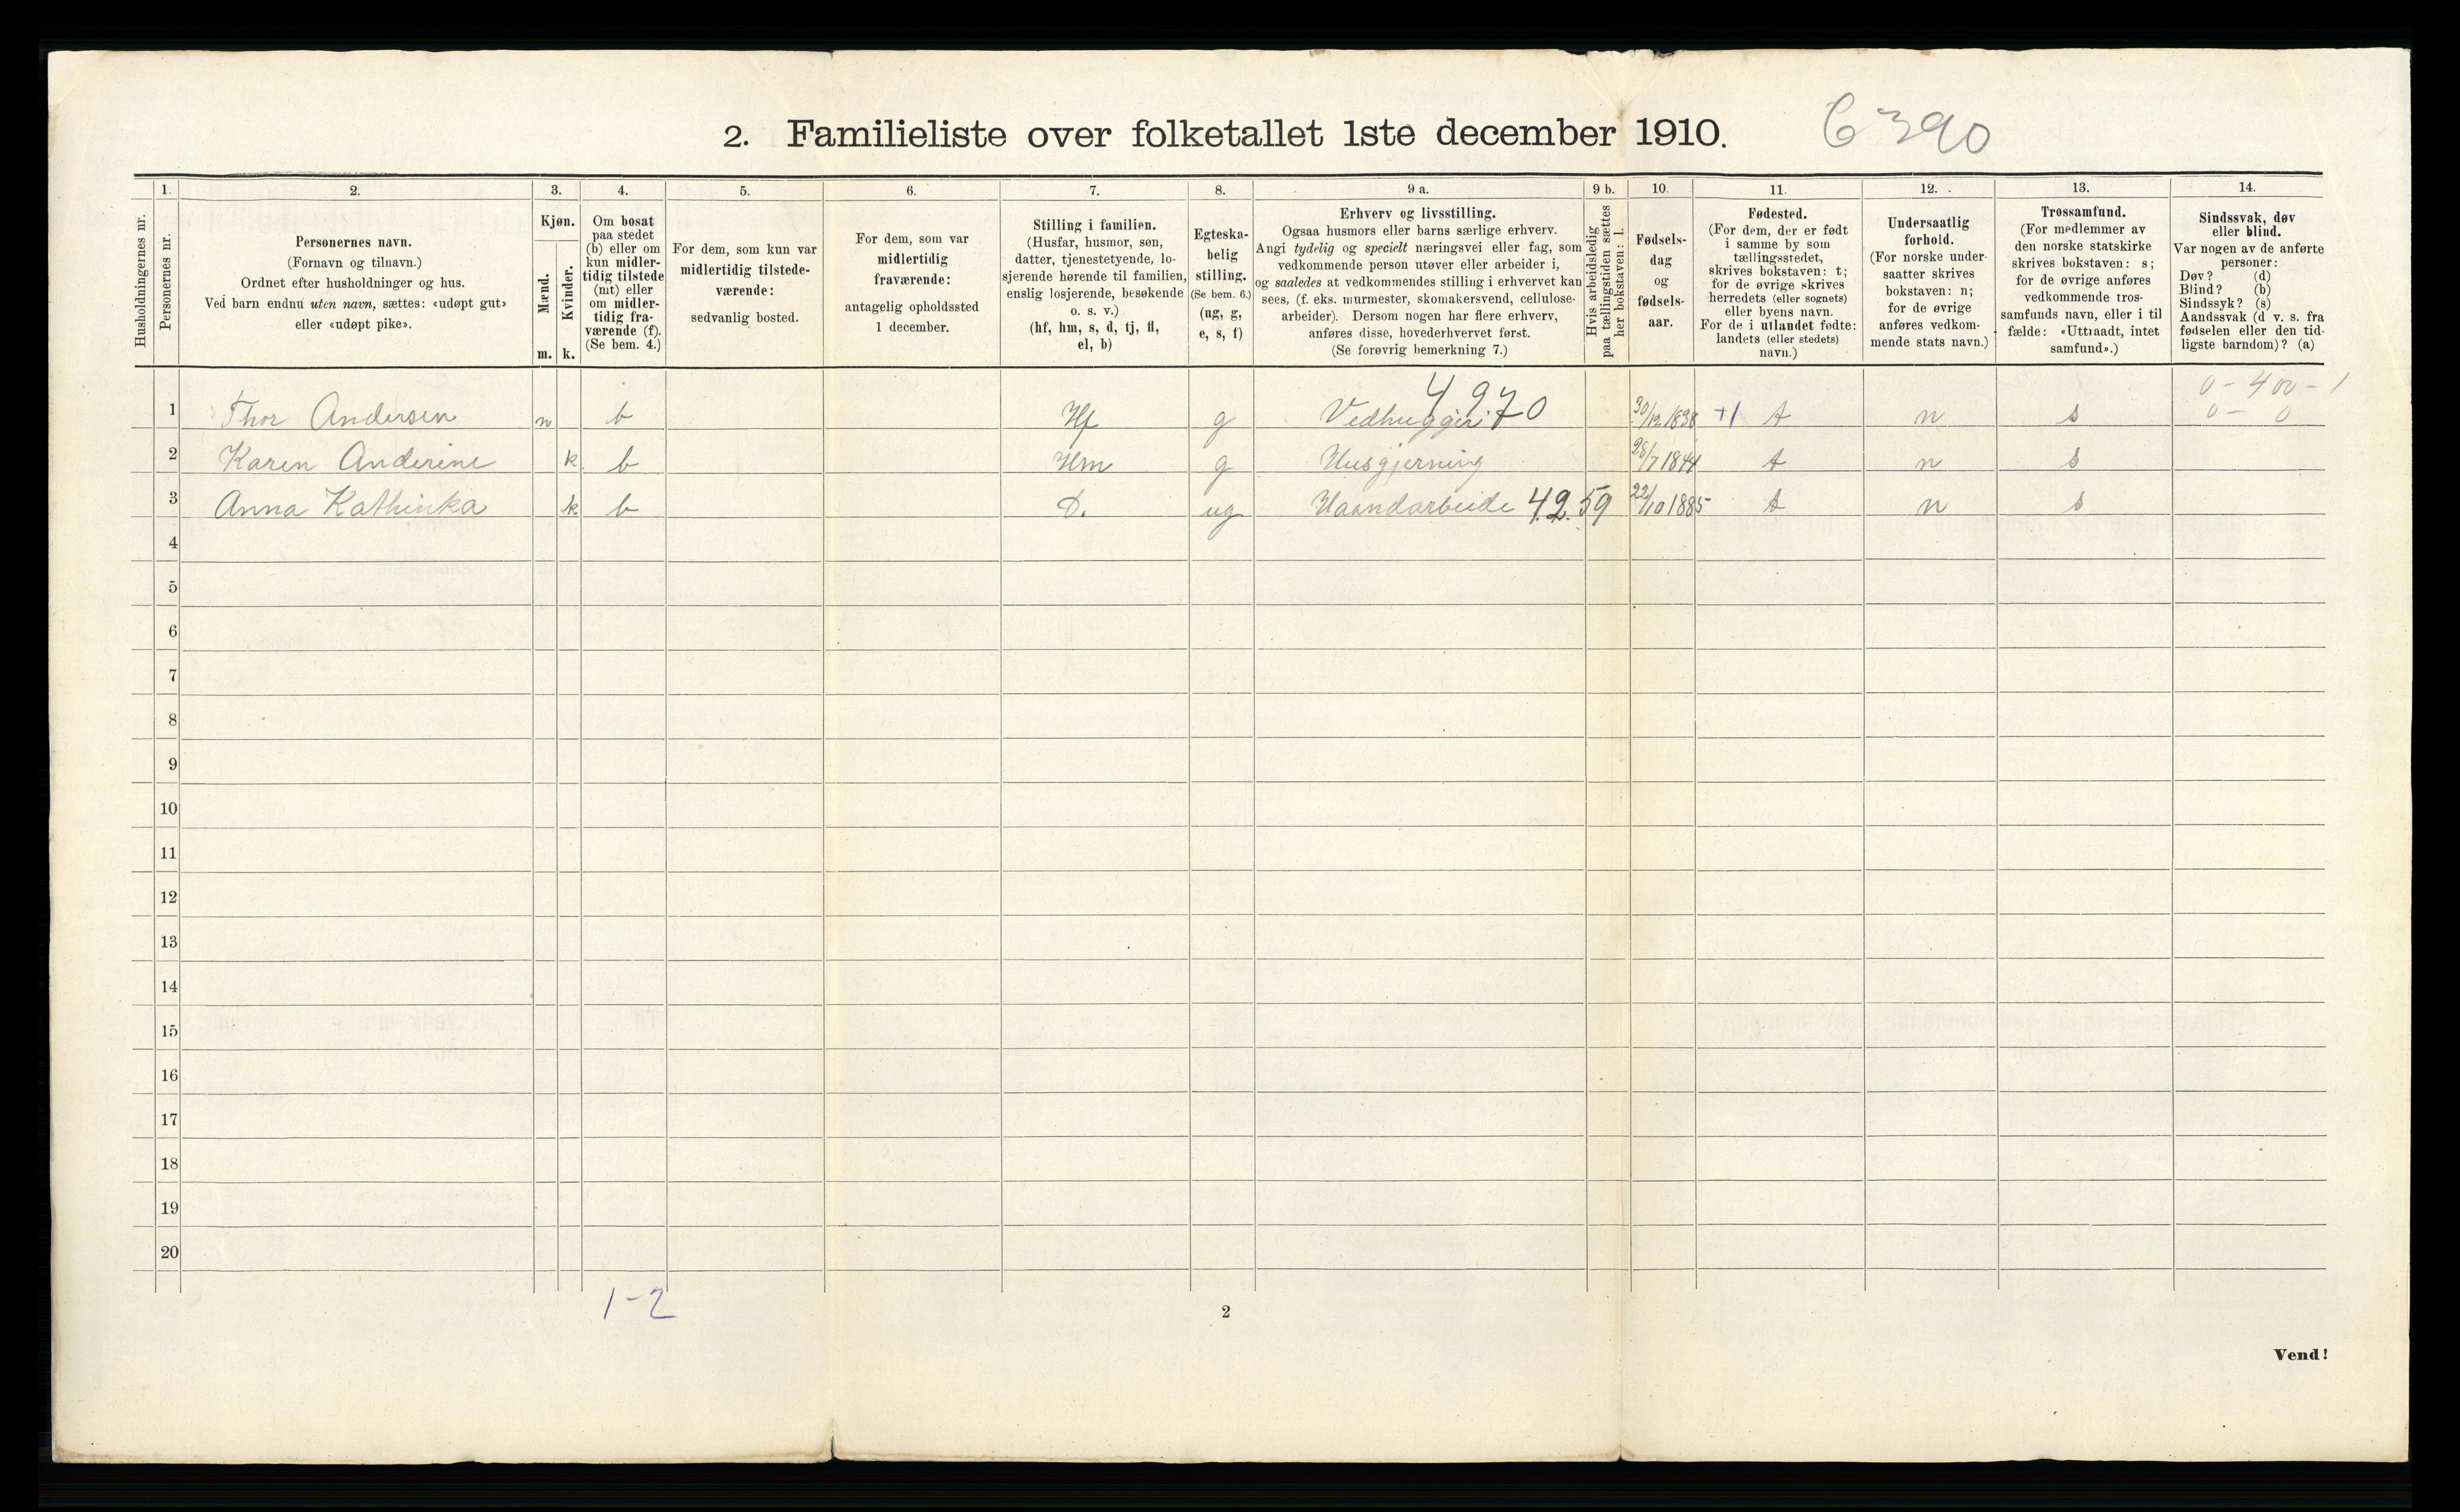 2. Familieliste over folketallet 1ste december 1910. 6390
1. 2. 3. 4. 5. 6. 7. 8. 9 a. 9 b. 10. 11. 12. 13. 14.
Husholdningernes nr.
Personernes nr.
Personernes navn.
(Fornavn og tilnavn.)
Ordnet efter husholdninger og hus.
Ved barn endnu uten navn, sættes: «udøpt gut»
eller «udøpt pike».
Kjøn.
Mænd.
m.
Kvinder.
k.
Om bosat
paa stedet
(b) eller om
kun midler-
tidig tilstede
(mt) eller
om midler-
tidig fra-
værende (f).
(Se bem. 4.)
For dem, som kun var
midlertidig tilstede-
værende:
sedvanlig bosted.
For dem, som var
midlertidig
fraværende:
antagelig opholdssted
1 december.
Stilling i familien.
(Husfar, husmor, søn,
datter, tjenestetyende, lo-
sjerende hørende til familien,
enslig losjerende, besøkende
o. s. v.)
(hf, hm, s, d, tj, fl,
el, b)
Egteska-
belig
stilling.
(Se bem. 6.)
(ug, g,
e, s, f)
Erhverv og livsstilling.
Ogsaa husmors eller barns særlige erhverv.
Angi tydelig og specielt næringsvei eller fag, som
vedkommende person utøver eller arbeider i,
og saaledes at vedkommendes stilling i erhvervet kan
sees, (f. eks. murmester, skomakersvend, cellulose-
arbeider). Dersom nogen har flere erhverv,
anføres disse, hovederhvervet først.
(Se forøvrig bemerkning 7.)
Hvis arbeidsledig
paa tællingstiden sættes
her bokstaven: l.
Fødsels-
dag
og
fødsels-
aar.
Fødested.
(For dem, der er født
i samme by som
tællingsstedet,
skrives bokstaven: t;
for de øvrige skrives
herredets (eller sognets)
eller byens navn.
For de i utlandet fødte:
landets (eller stedets)
navn.)
Undersaatlig
forhold.
(For norske under-
saatter skrives
bokstaven: n;
for de øvrige
anføres vedkom-
mende stats navn.)
Trossamfund.
(For medlemmer av
den norske statskirke
skrives bokstaven: s;
for de øvrige anføres
vedkommende tros-
samfunds navn, eller i til
fælde: «Uttraadt, intet
samfund».)
Sindssvak, døv
eller blind.
Var nogen av de anførte
personer:
Døv? (d)
Blind? (b)
Sindssyk? (s)
Aandssvak (d v. s. fra
fødselen eller den tid-
ligste barndom)? (a)
4970 0 - 400 - 1
1 Thor Andersen m b Hf g Vedhuggeri 30/12 1838 +1 t n s 0 - 0
2 Karen Anderine k b Hm g Husgjerning 26/7 1844 t n s
3 Anna Kathinka k b D. ug Haandarbeide 42.59 22/10 1885 t n s
4
5
6
7
8
9
10
11
12
13
14
15
16
17
18
19
20
1-2
2
Vend!